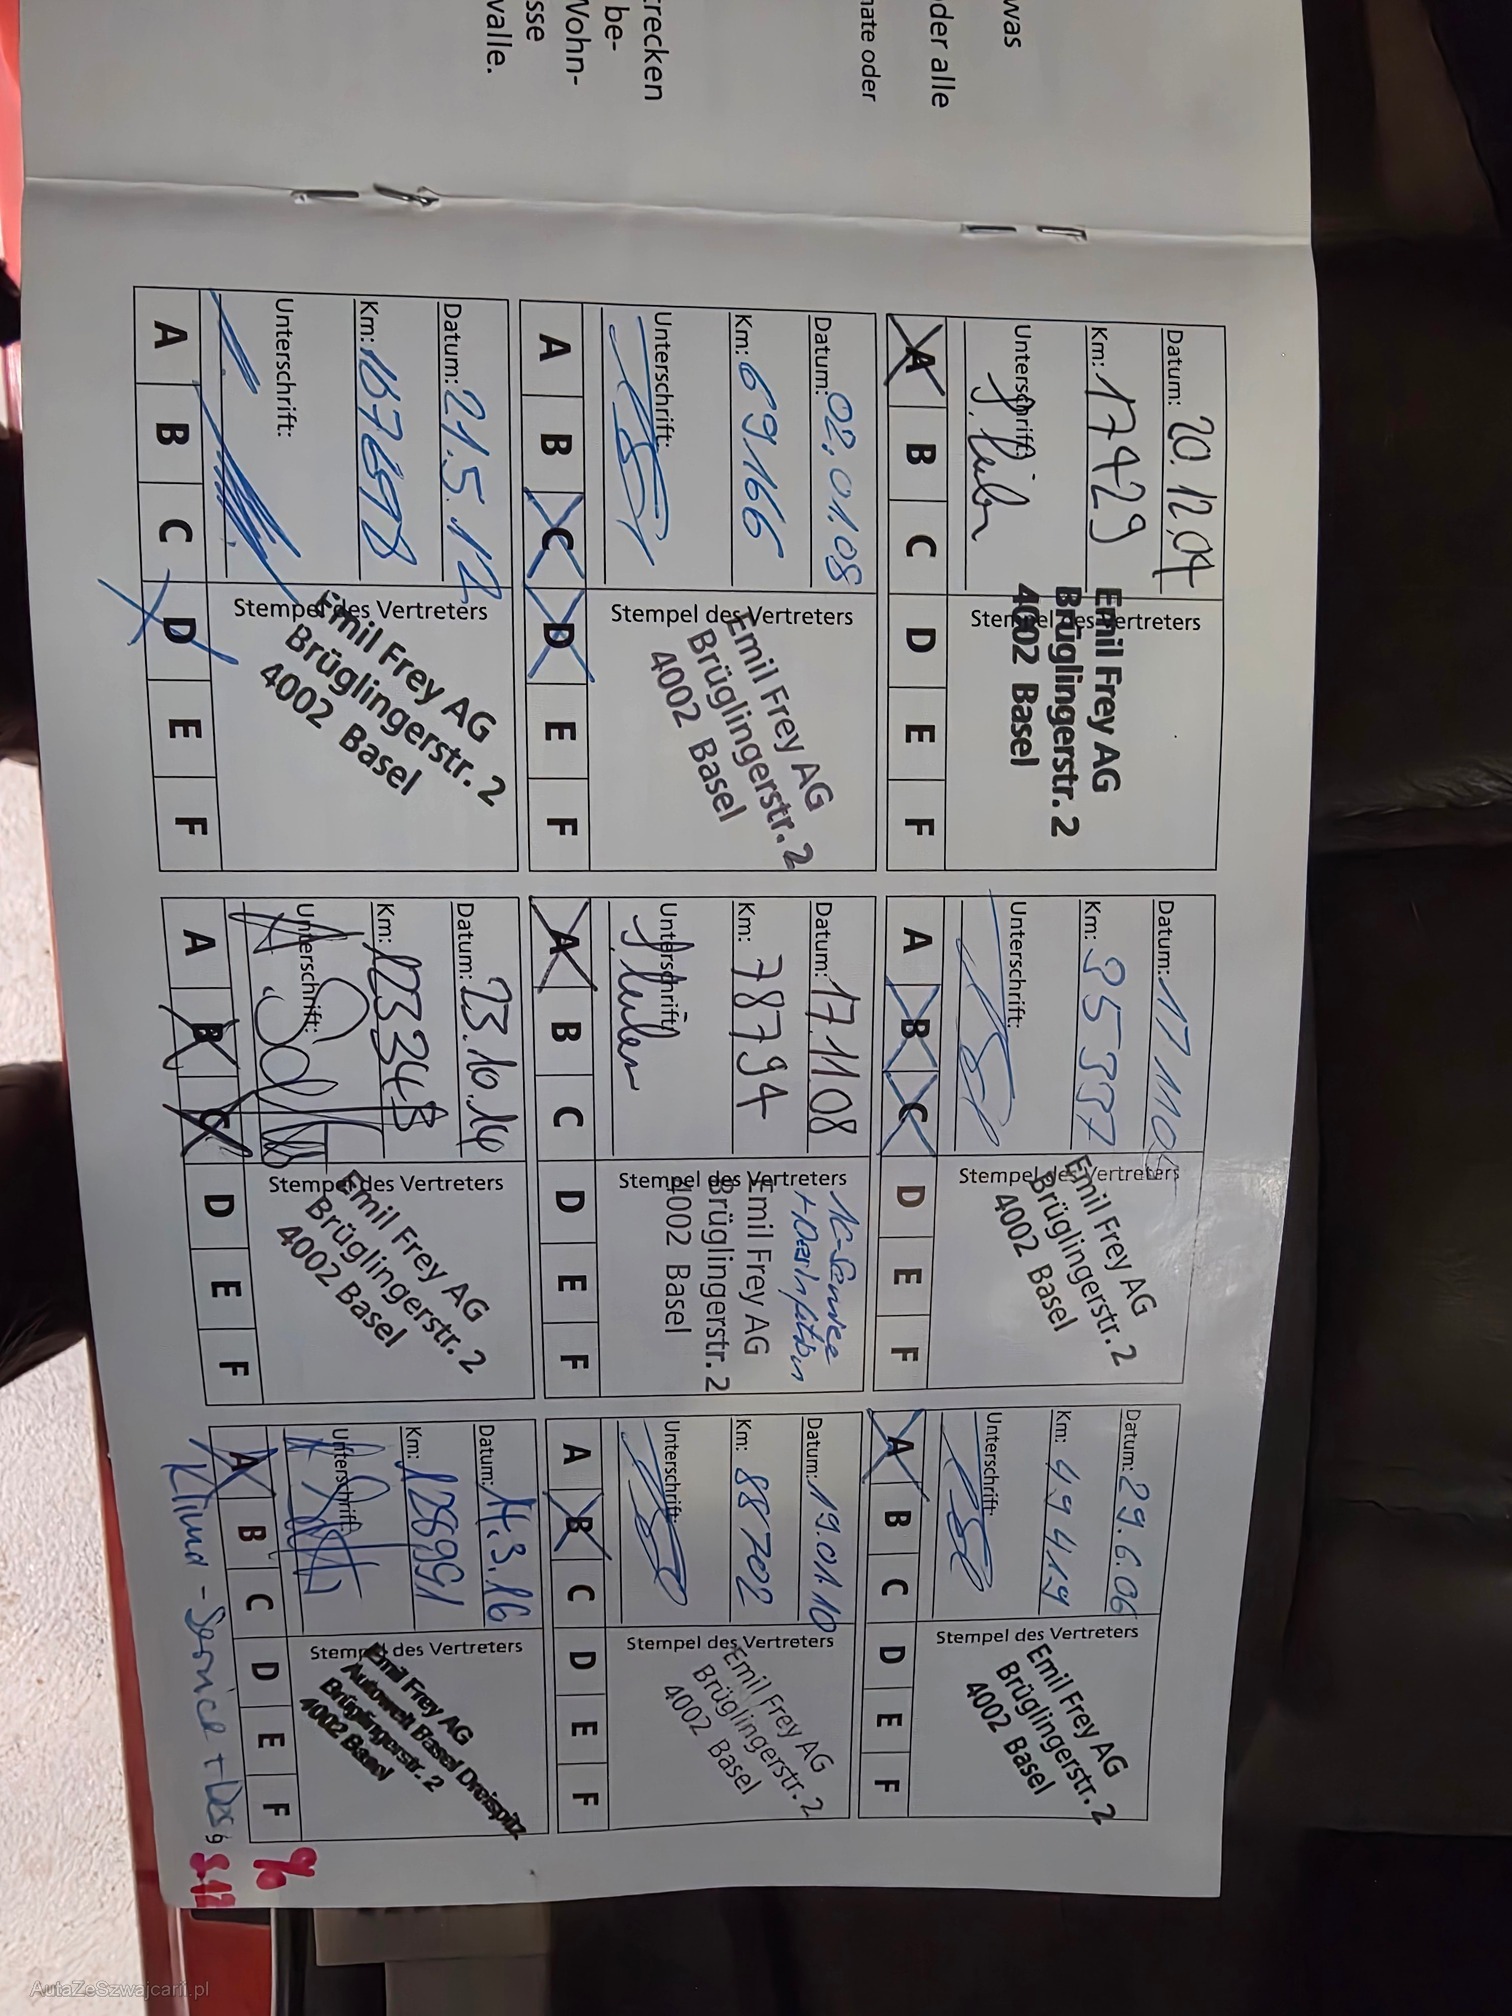 was
oder alle
nate oder
recken
be-
Wohn-
sse
valle.
Datum: 20.12.04
Km: 17429
Unterschrift:
Stempel des Vertreters
Emil Frey AG
Brüglingerstr. 2
4002 Basel
A B C D E F
Datum:
Km:
Unterschrift:
Stempel des Vertreters
Emil Frey AG
Brüglingerstr. 2
4002 Basel
A B C D E F
Datum: 29.6.06
Km: 49419
Unterschrift:
Stempel des Vertreters
Emil Frey AG
Brüglingerstr. 2
4002 Basel
A B C D E F
Datum: 02.01.08
Km: 69166
Unterschrift:
Stempel des Vertreters
Emil Frey AG
Brüglingerstr. 2
4002 Basel
A B C D E F
Datum: 17.11.08
Km: 78794
Unterschrift:
Stempel des Vertreters
+ Desinfektion
Emil Frey AG
Brüglingerstr. 2
4002 Basel
A B C D E F
Datum: 19.01.10
Km: 88702
Unterschrift:
Stempel des Vertreters
Emil Frey AG
Brüglingerstr. 2
4002 Basel
A B C D E F
Datum: 21.5.12
Km: 107698
Unterschrift:
Stempel des Vertreters
Emil Frey AG
Brüglingerstr. 2
4002 Basel
A B C D E F
Datum: 23.10.14
Km:
Unterschrift:
Stempel des Vertreters
Emil Frey AG
Brüglingerstr. 2
4002 Basel
A B C D E F
Datum: 11.3.16
Km: 128991
Unterschrift:
Stempel des Vertreters
Emil Frey AG
Autowelt Basel Dreispitz
Brüglingerstr. 2
4002 Basel
A B C D E F
Klima - Service + Des
9
AutaZeSzwajcarii.pl